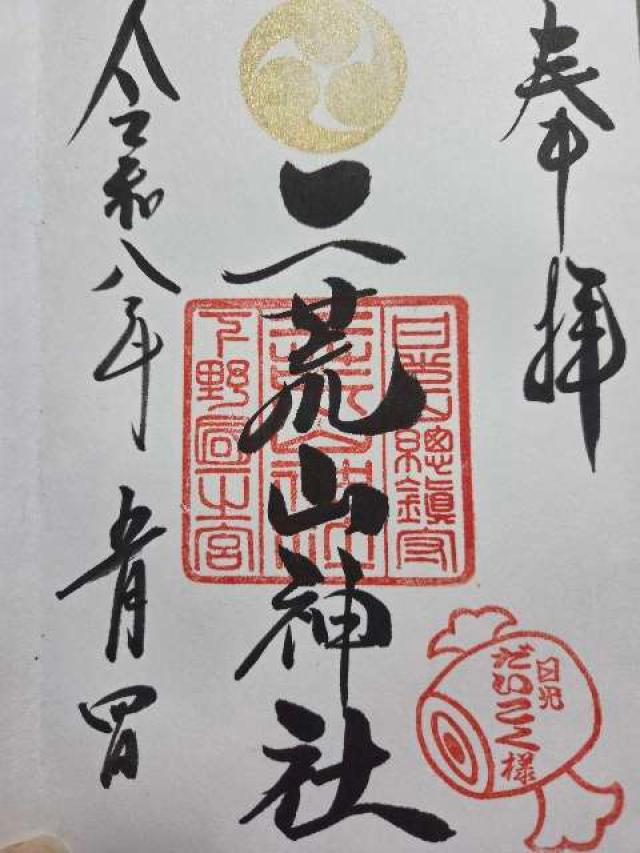 奉拝
日光山總鎮守
二荒山神社
下野國一之宮
令和八年 五月 四日
日光
だいこく様